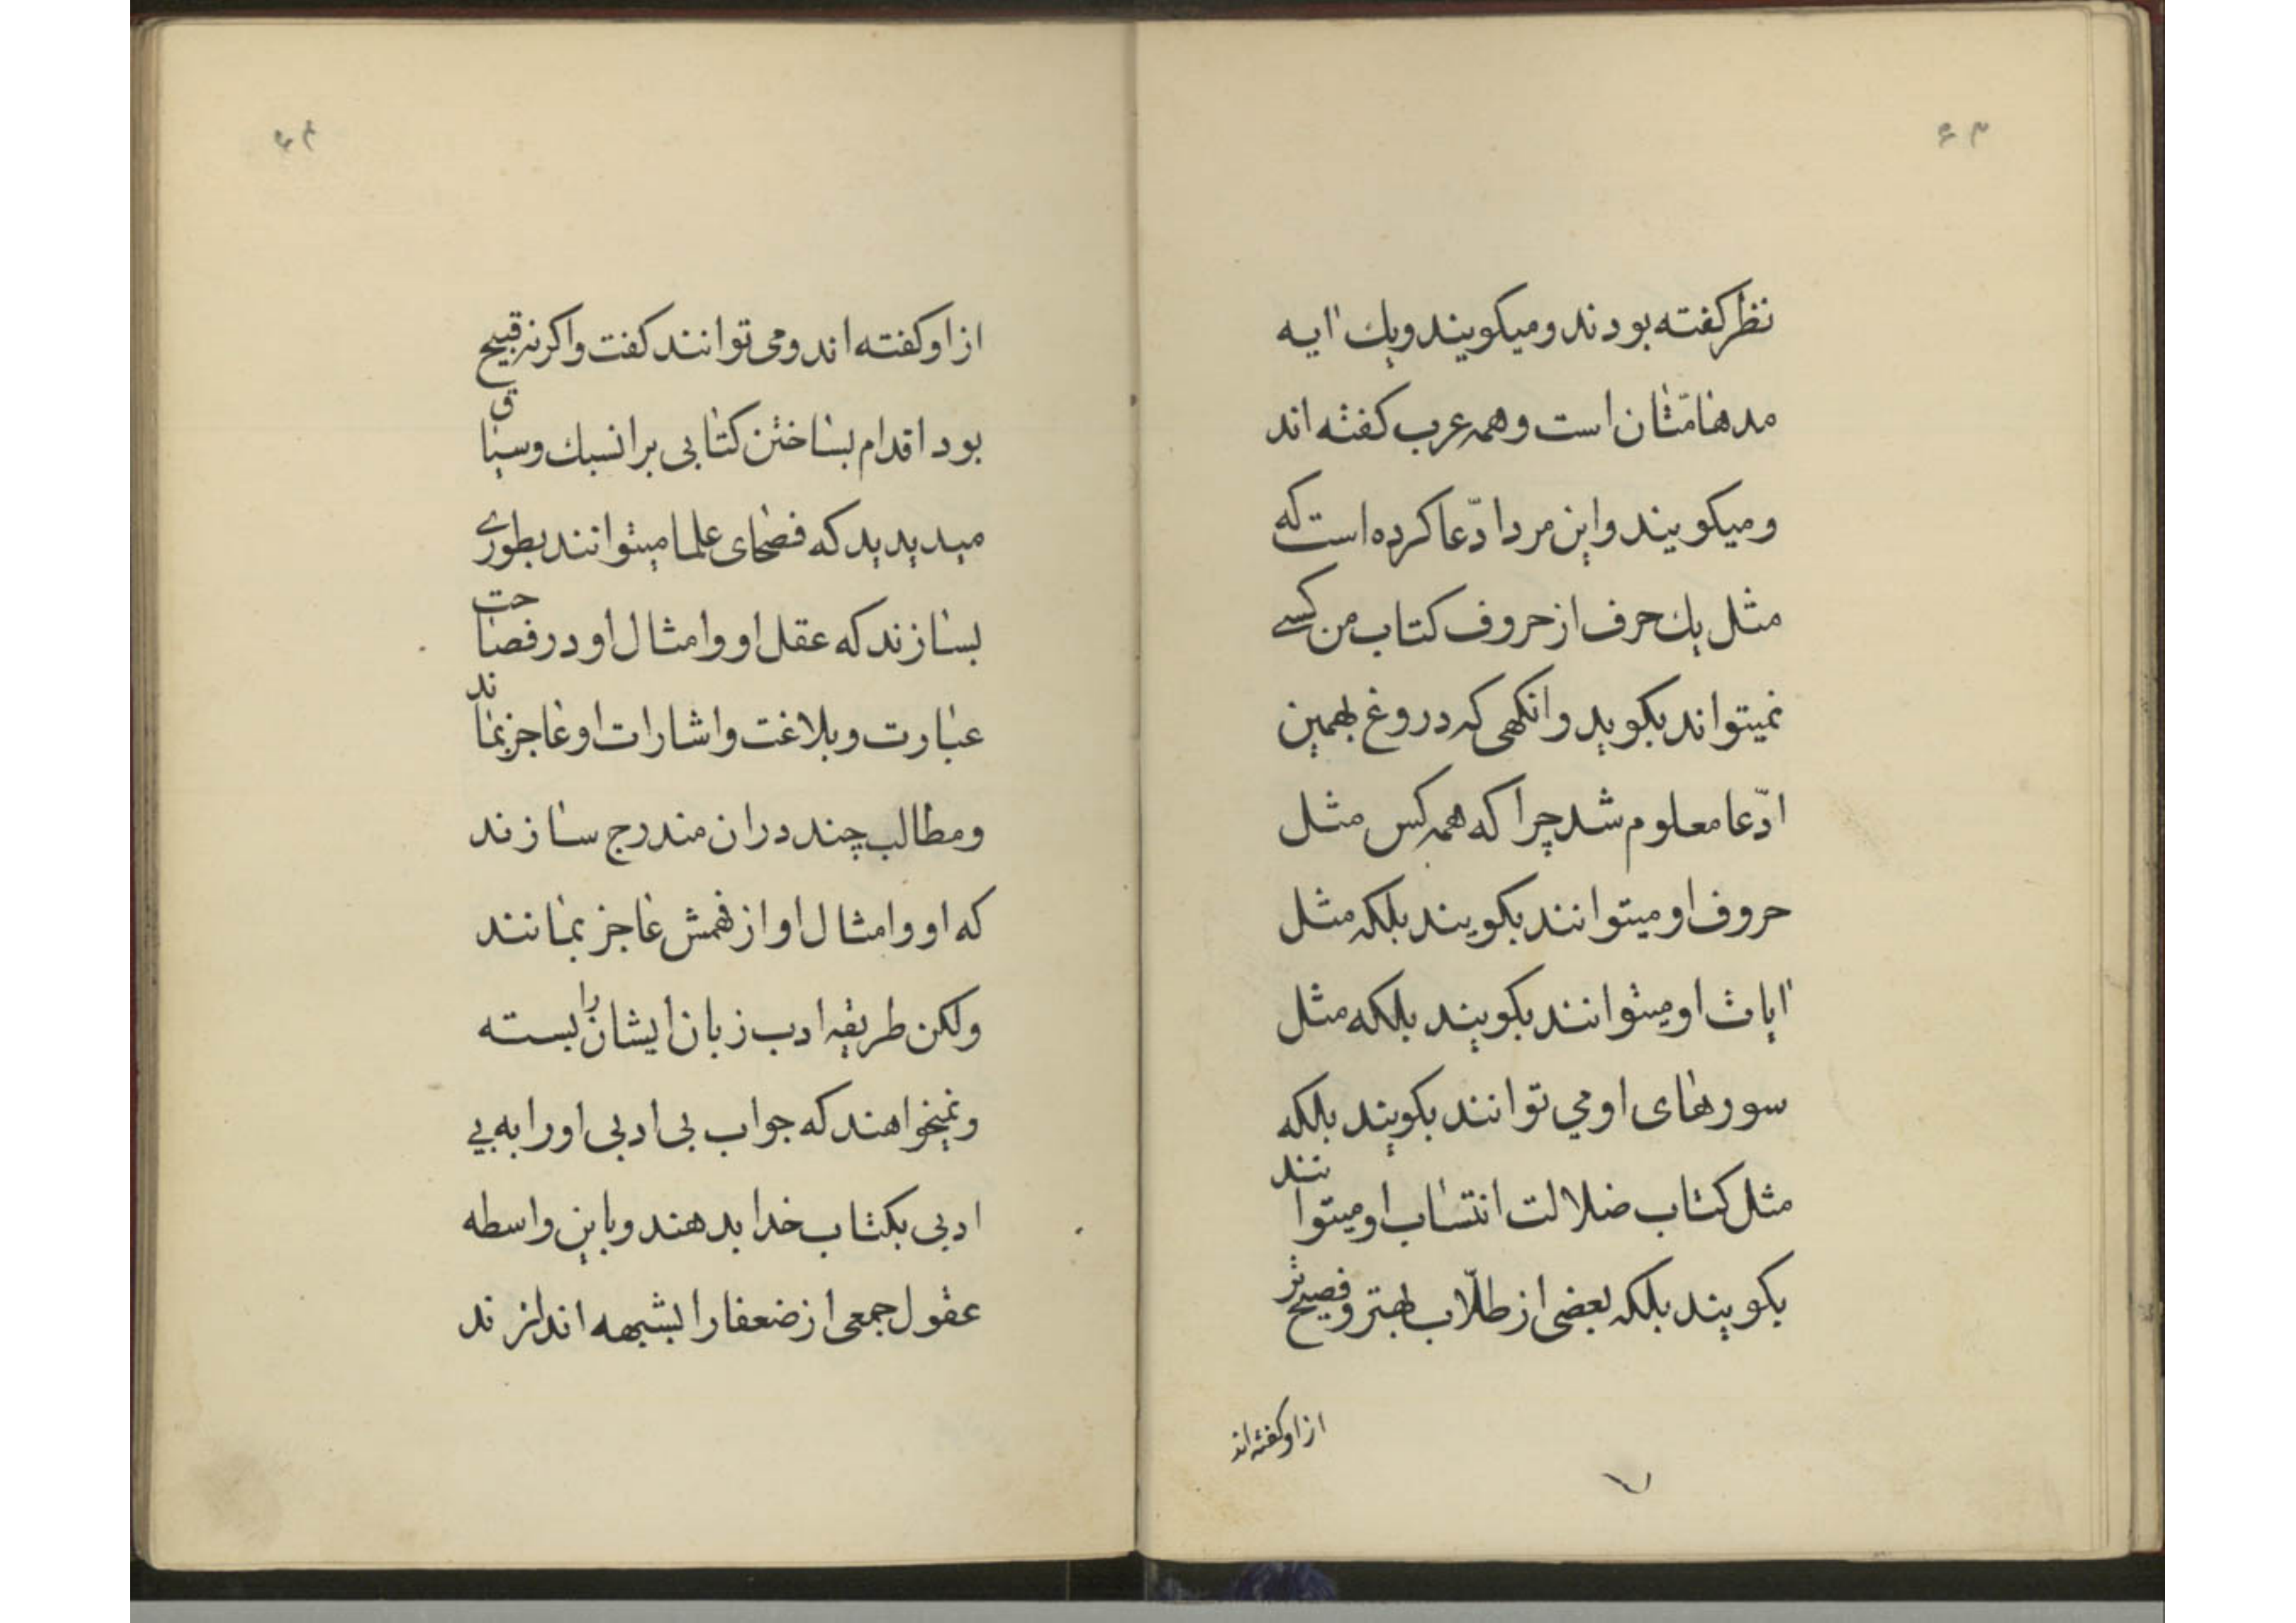 ۶۳
نظر کفته بودند و میکویند و یك ایه
مدهامّتان است و همه عرب کفته اند
و میکویند و این مرد ادّعا کرده است که
مثل یك حرف از حروف کتاب من کسے
نمیتواند بکوید و انکهی که دروغ بهمین
ادّعا معلوم شد چرا که همه کس مثل
حروف او میتوانند بکویند بلکه مثل
ایات او میتوانند بکویند بلکه مثل
سورهای او می توانند بکویند بلکه
مثل کتاب ضلالت انتساب او میتوانند
بکویند بلکه بعضی از طلّاب بهتر و فصیح تر
از او کفته اند
۶۴
از او کفته اند و می توانند کفت و اکر نه قبیح
بود اقدام بساختن کتابی بر انسبك و سیاق
میدیدید که فصحای علما میتوانند بطورے
بسازند که عقل او و امثال او در فصاحت
عبارت و بلاغت و اشارات او عاجز بماند
و مطالب چند در ان مندرج سازند
که او و امثال او از فهمش عاجز بمانند
ولکن طریقه ادب زبان ایشان را بسته
و نمیخواهند که جواب بی ادبی او را به بی
ادبی بکتاب خدا بدهند و باین واسطه
عقول جمعی از ضعفا را بشبهه اندازند